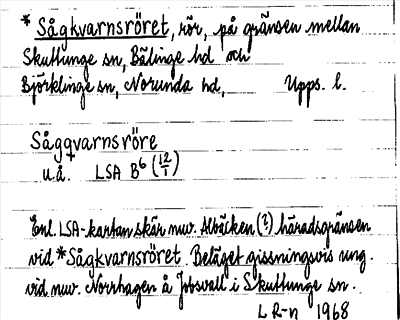 * Sågkvarnsröret, rör, på gränsen mellan
Skuttunge sn, Bälinge hd och
Björklinge sn, Norunda hd, Upps. l.
Sågqvarnsröre
u.å. LSA B6 (12/1)
Enl. LSA-kartan skär nuv. Albäcken (?) häradsgränsen
vid *Sågkvarnsröret. Beläget gissningsvis ung.
vid nuv. Norrhagen å Jobsvall i Skuttunge sn.
L R-n 1968